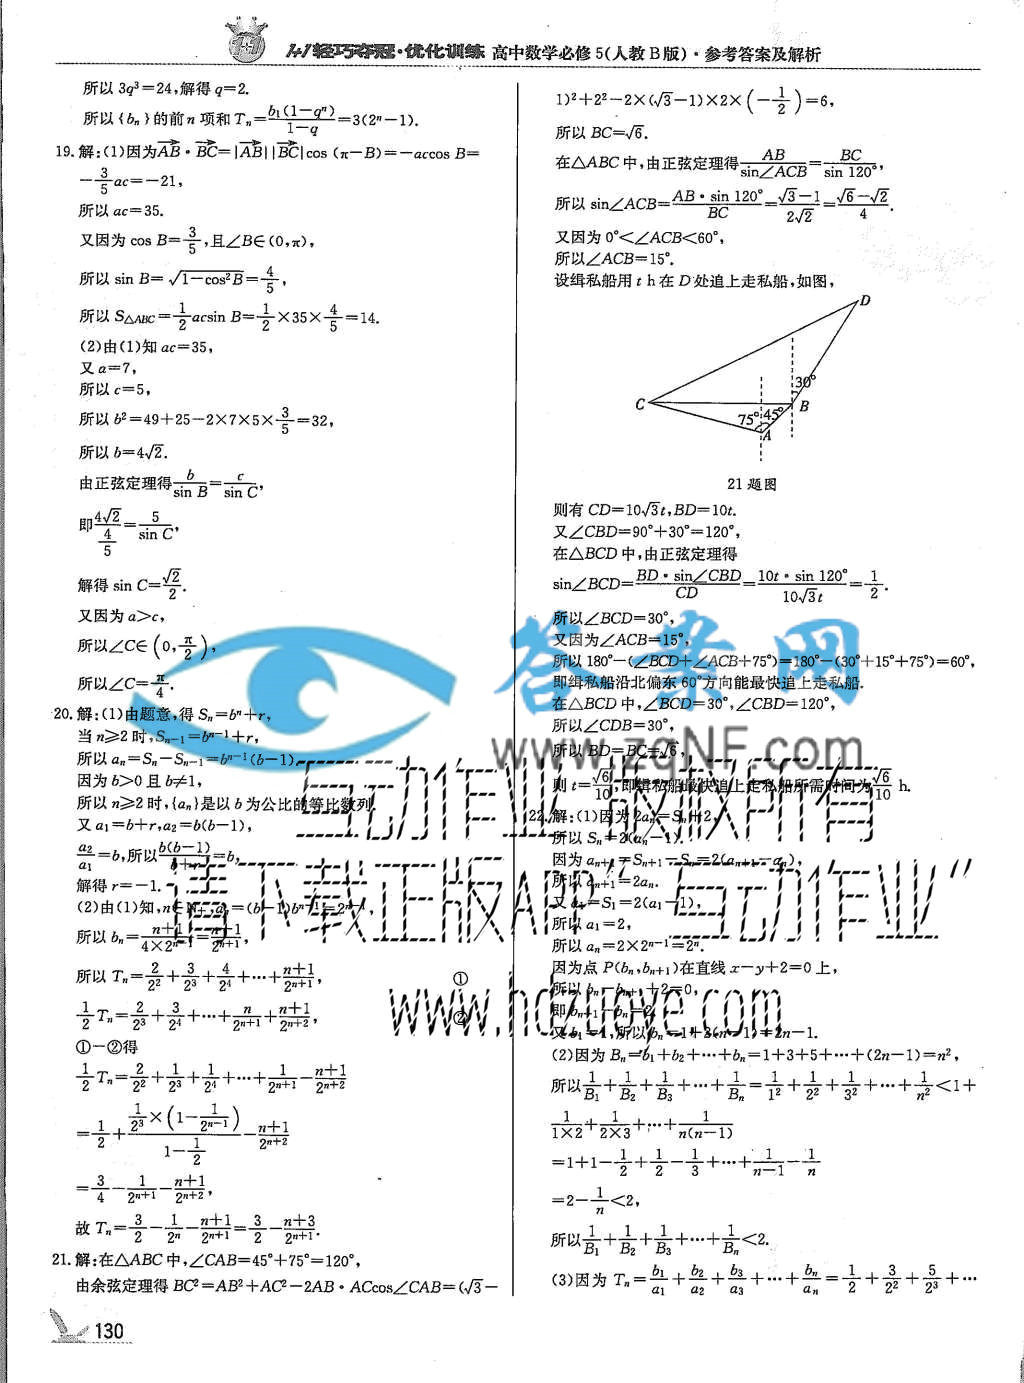 1+1轻巧夺冠·优化训练 高中数学必修5(人教B版)·参考答案及解析
所以 3q³=24,解得 q=2.
所以{bₙ}的前n项和Tₙ=b₁(1-qⁿ)/(1-q)=3(2ⁿ-1).
19.解:(1)因为AB·BC=|AB||BC|cos (π-B)=-accos B=
-3/5ac=-21,
所以 ac=35.
又因为 cos B=3/5,且∠B∈(0,π),
所以 sin B=√(1-cos²B)=4/5,
所以 S△ABC=1/2acsin B=1/2×35×4/5=14.
(2)由(1)知 ac=35,
又 a=7,
所以 c=5,
所以 b²=49+25-2×7×5×3/5=32,
所以 b=4√2.
由正弦定理得b/sin B=c/sin C,
即4√2/(4/5)=5/sin C,
解得 sin C=√2/2.
又因为 a>c,
所以∠C∈(0,π/2),
所以∠C=π/4.
20.解:(1)由题意,得 Sₙ=bⁿ+r,
当 n≥2 时,Sₙ₋₁=bⁿ⁻¹+r,
所以 aₙ=Sₙ-Sₙ₋₁=bⁿ⁻¹(b-1),
因为 b>0 且 b≠1,
所以 n≥2 时,{aₙ}是以 b 为公比的等比数列.
又 a₁=b+r,a₂=b(b-1),
a₂/a₁=b,所以b(b-1)/(b+r)=b,
解得 r=-1.
(2)由(1)知,n∈N₊,aₙ=(b-1)bⁿ⁻¹=2ⁿ⁻¹,
所以 bₙ=(n+1)/(4×2ⁿ⁻¹)=(n+1)/2ⁿ⁺¹,
所以 Tₙ=2/2²+3/2³+4/2⁴+…+(n+1)/2ⁿ⁺¹, ①
1/2Tₙ=2/2³+3/2⁴+…+n/2ⁿ⁺¹+(n+1)/2ⁿ⁺², ②
①-②得
1/2Tₙ=2/2²+1/2³+1/2⁴+…+1/2ⁿ⁺¹-(n+1)/2ⁿ⁺²
=1/2+(1/2³×(1-1/2ⁿ⁻¹))/(1-1/2)-(n+1)/2ⁿ⁺²
=3/4-1/2ⁿ⁺¹-(n+1)/2ⁿ⁺²,
故 Tₙ=3/2-1/2ⁿ-(n+1)/2ⁿ⁺¹=3/2-(n+3)/2ⁿ⁺¹.
21.解:在△ABC 中,∠CAB=45°+75°=120°,
由余弦定理得 BC²=AB²+AC²-2AB·ACcos∠CAB=(√3-
130
1)²+2²-2×(√3-1)×2×(-1/2)=6,
所以 BC=√6.
在△ABC 中,由正弦定理得AB/sin∠ACB=BC/sin 120°,
所以 sin∠ACB=AB·sin 120°/BC=(√3-1)/2√2=(√6-√2)/4.
又因为 0°<∠ACB<60°,
所以∠ACB=15°.
设缉私船用 t h 在 D 处追上走私船,如图,
D
30°
C
B
75°
45°
A
21 题图
则有 CD=10√3t,BD=10t.
又∠CBD=90°+30°=120°,
在△BCD 中,由正弦定理得
sin∠BCD=BD·sin∠CBD/CD=10t·sin 120°/10√3t=1/2.
所以∠BCD=30°,
又因为∠ACB=15°,
所以 180°-(∠BCD+∠ACB+75°)=180°-(30°+15°+75°)=60°,
即缉私船沿北偏东 60°方向能最快追上走私船.
在△BCD 中,∠BCD=30°,∠CBD=120°,
所以∠CDB=30°,
所以 BD=BC=√6,
则 t=√6/10,即缉私船最快追上走私船所需时间为√6/10 h.
22.解:(1)因为 2aₙ=Sₙ+2,
所以 Sₙ=2(aₙ-1).
因为 aₙ₊₁=Sₙ₊₁-Sₙ=2(aₙ₊₁-aₙ),
所以 aₙ₊₁=2aₙ.
又 a₁=S₁=2(a₁-1),
所以 a₁=2,
所以 aₙ=2×2ⁿ⁻¹=2ⁿ.
因为点 P(bₙ,bₙ₊₁)在直线 x-y+2=0 上,
所以 bₙ-bₙ₊₁+2=0,
即 bₙ₊₁-bₙ=2.
又 b₁=1,所以 bₙ=1+2(n-1)=2n-1.
(2)因为 Bₙ=b₁+b₂+…+bₙ=1+3+5+…+(2n-1)=n²,
所以1/B₁+1/B₂+1/B₃+…+1/Bₙ=1/1²+1/2²+1/3²+…+1/n²<1+
1/(1×2)+1/(2×3)+…+1/(n(n-1))
=1+1-1/2+1/2-1/3+…+1/(n-1)-1/n
=2-1/n<2,
所以1/B₁+1/B₂+1/B₃+…+1/Bₙ<2.
(3)因为 Tₙ=b₁/a₁+b₂/a₂+b₃/a₃+…+bₙ/aₙ=1/2+3/2²+5/2³+…
答案网
www.zqNF.com
互动作业 版权所有
请下载正版APP“互动作业”
www.hdzuoye.com